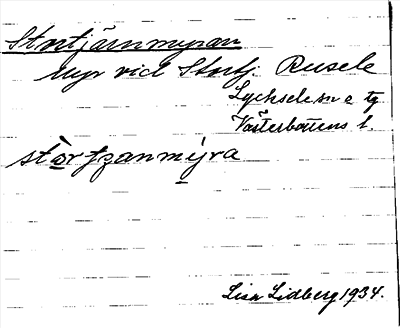 Stortjärnmyran
Myr vid Stortj. Rusele
Lycksele sn o tg
Västerbottens l.
stòrtȥanmýra
Lisa Lidberg 1934.